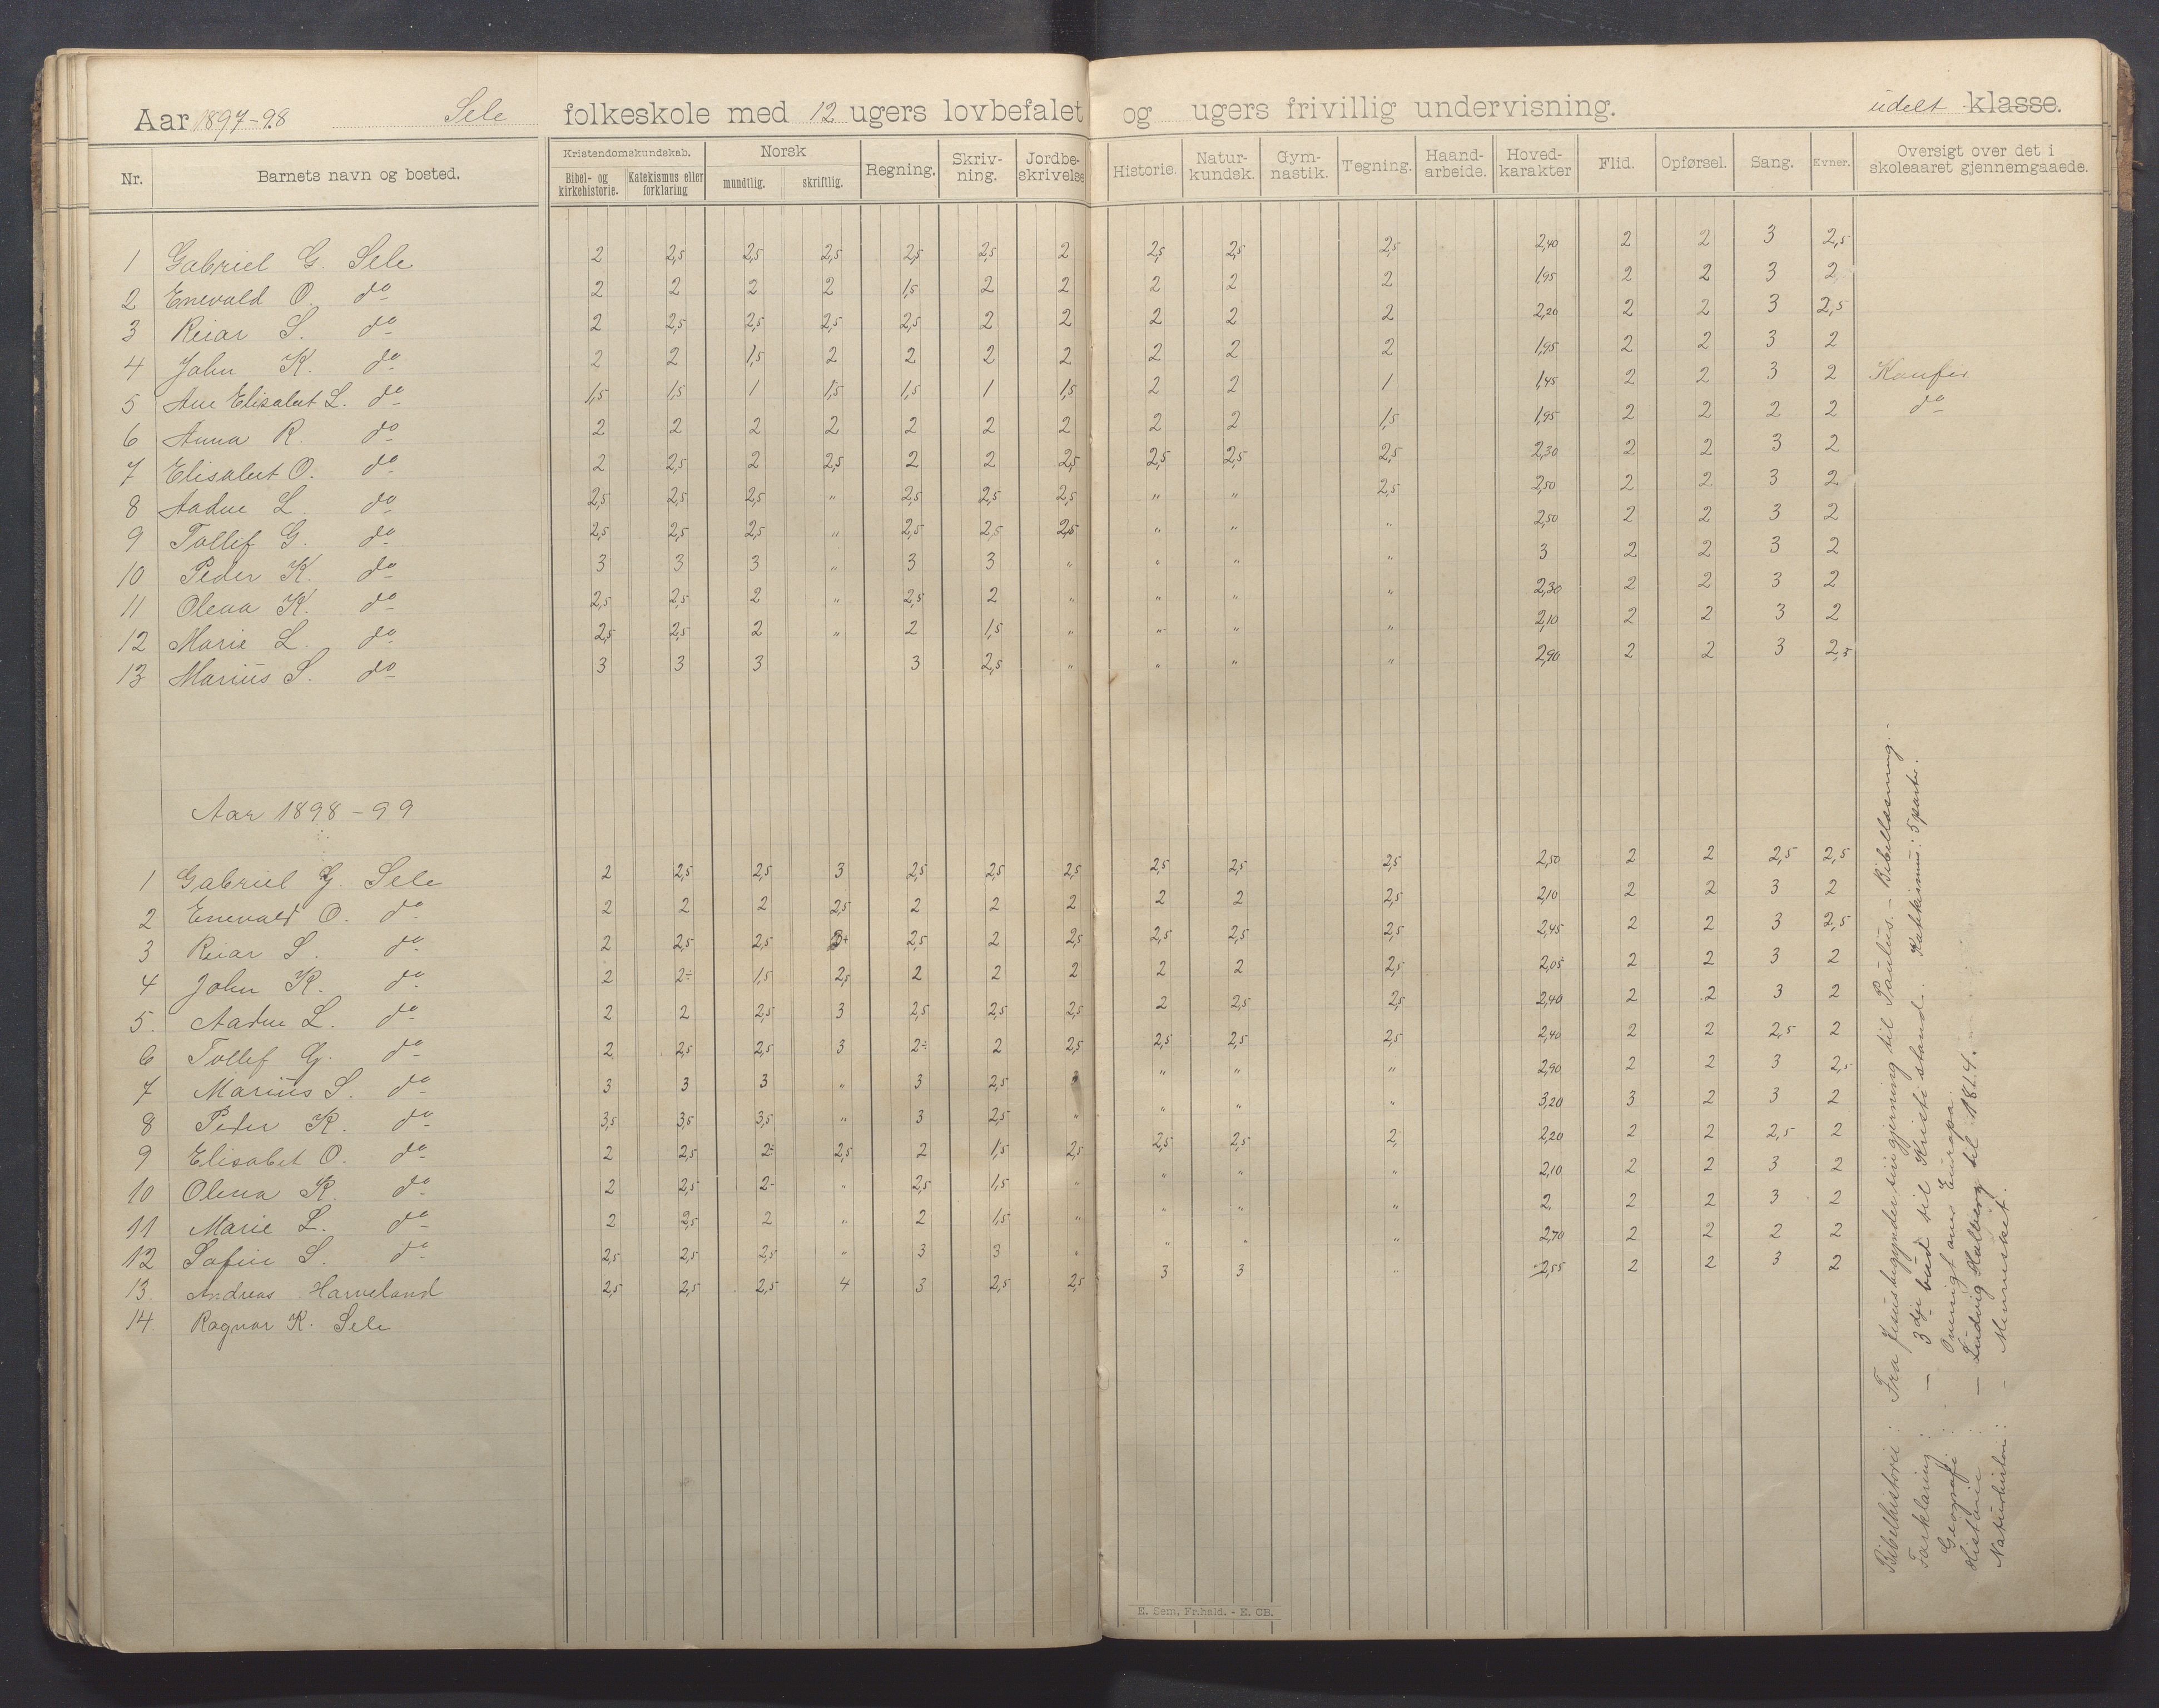 Aar 1897-98 Sele folkeskole med 12 ugers lovbefalet og ugers frivillig undervisning. udelt klasse.
Nr. Barnets navn og bosted. Kristendomskundskab. Bibel- og kirkehistorie. Katekismus eller forklaring Norsk mundtlig. skriftlig. Regning. Skriv-ning. Jordbe-skrivelse Historie. Natur-kundsk. Gym-nastik. Tegning. Haand-arbeide. Hoved-karakter Flid. Opførsel. Sang. Evner. Oversigt over det i skoleaaret gjennemgaaede.
1 Gabriel G. Sele 2 2,5 2,5 2,5 2,5 2,5 2 2,5 2,5 2,5 2,40 2 2 3 2,5
2 Enevald O. do 2 2 2 2 1,5 2 2 2 2 2 1,95 2 2 3 2
3 Reiar S. do 2 2,5 2,5 2,5 2,5 2 2 2 2 2 2,20 2 2 3 2,5
4 John K. do 2 2 1,5 2 2 2 2 2 2 2 1,95 2 2 3 2
5 Ane Elisabet L. do 1,5 1,5 1 1,5 1,5 1 1,5 2 2 1 1,45 2 2 3 2 Konfir
6 Anna R. do 2 2 2 2 2 2 2 2 2 1,5 1,95 2 2 2 2 do
7 Elisabet O. do 2 2,5 2 2,5 2 2 2,5 2,5 2,5 2,5 2,30 2 2 3 2
8 Aadne L. do 2,5 2,5 2,5 " 2,5 2,5 2,5 " " 2,5 2,50 2 2 3 2
9 Tollef G. do 2,5 2,5 2,5 " 2,5 2,5 2,5 " " " 2,50 2 2 3 2
10 Peder K. do 3 3 3 " 3 3 " " " " 3 2 2 3 2
11 Olena K. do 2,5 2,5 2 " 2,5 2 " " " " 2,30 2 2 3 2
12 Marie L. do 2,5 2,5 2 " 2 1,5 " " " " 2,10 2 2 3 2
13 Marius S. do 3 3 3 3 2,5 " " " " 2,90 2 2 3 2,5
Aar 1898-99
1 Gabriel G. Sele 2 2,5 2,5 3 2,5 2,5 2,5 2,5 2,5 2,5 2,50 2 2 2,5 2,5
2 Enevald O. do 2 2 2 2,5 2 2 2 2 2 2,5 2,10 2 2 3 2
3 Reiar S. do 2 2,5 2,5 3+ 2,5 2 2,5 2,5 2,5 2,5 2,45 2 2 3 2,5
4 John K. do 2 2- 1,5 2,5 2 2 2 2 2 2,5 2,05 2 2 3 2
5. Aadne L. do 2 2 2,5 3 2,5 2,5 2,5 2 2,5 2,5 2,40 2 2 3 2
6 Tollef G. do 2 2,5 2,5 3 2- 2 2,5 2,5 2,5 2,5 2,40 2 2 2,5 2
7 Marius S. do 3 3 3 " 3 2,5 " " " 2,90 2 2 3 2,5
8 Peder K. do 3,5 3,5 3,5 " 3 2,5 " " " " 3,20 3 2 3 2
9 Elisabet O. do 2 2,5 2- 2,5 2 1,5 2,5 2,5 2,5 2 2,20 2 2 2,5 2
10 Olena K. do 2 2,5 2- " 2,5 1,5 " " " " 2,10 2 2 3 2
11 Marie L. do 2 2,5 2 " 2 1,5 " " " " 2 2 2 3 2
12 Sofie S. do 2,5 2,5 2,5 " 3 3 " " " " 2,70 2 2 2 2
13. Andreas Harveland 2,5 2,5 2,5 4 3 2,5 2,5 3 3 " 2,55 2 2 3 2
14 Ragnar K. Sele
Bibelhistorie: Fra Jesus begynder sin gjerning til Paulus. - Bibellæsning.
Forklaring: — 3dje bud til Kristi stand. Katekismus: 5 parti.
Geografi: - Omrigt oms Europa.
Historie: — Ludvig Holberg til 1814.
Naturhistorie: - Mennesket.
E. Sem, Fr.hald. - E. CB.